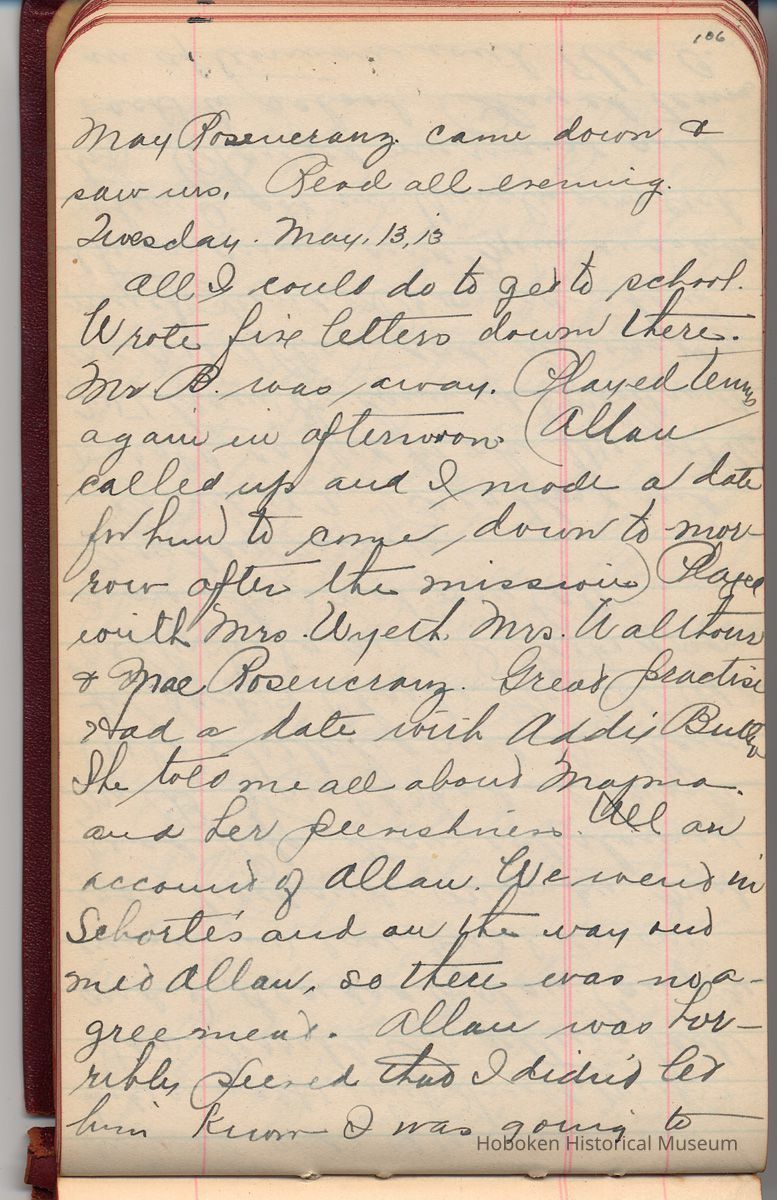 106
May Rosencranz came down &
saw us. Read all evening.
Tuesday. May, 13, 13
All I could do to get to school.
Wrote five letters down there.
Mr B. was away. Played tennis
again in afternoon. (Allan
called up and I made a date
for him to come down to mor-
row after the mission) Played
with Mrs. Wyeth Mrs. Walthour
& Mae Rosencranz. Great practise
Had a date with Addie Butler
She told me all about Mama.
and her peevishness. All on
account of Allan. We went in
Schorte's and on the way out
met Allan, so there was no a-
greement. Allan was hor-
ribly peeved that I didn't let
him know I was going to
Hoboken Historical Museum